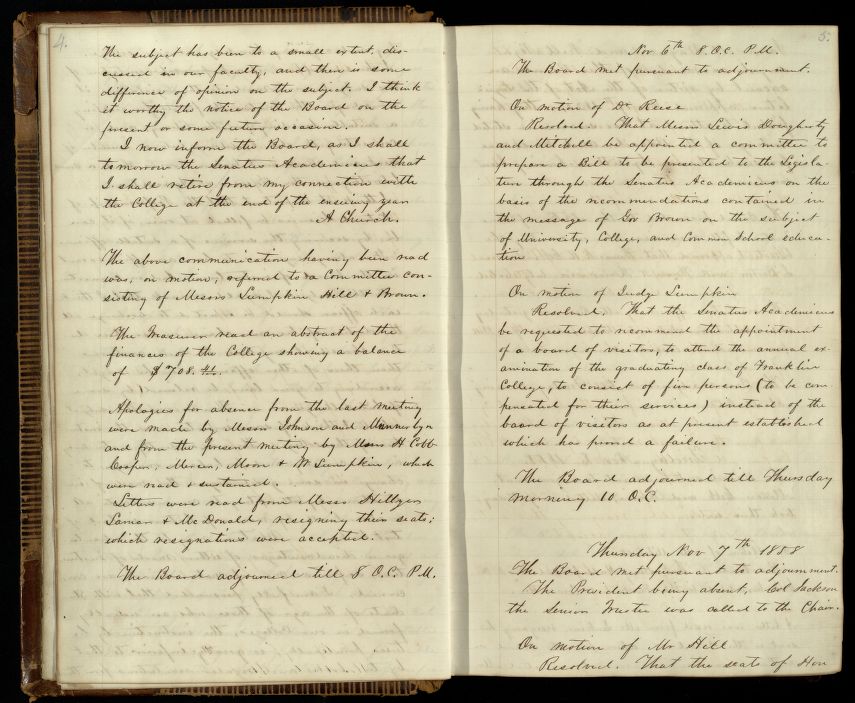 4.
The subject has been to a small extent, dis-
cussed in our faculty, and there is some
difference of opinion on the subject. I think
it worthy the notice of the Board on the
present or some future occasion.
I now inform the Board, as I shall
tomorrow the Senatus Academicus that
I shall retire from my connection with
the College at the end of the ensuing year
A Church.
The above communication having been read
was, on motion, referred to a Committee con-
sisting of Messrs Lumpkin Hill & Brown.
The Treasurer read an abstract of the
finances of the College showing a balance
of $708.44.
Apologies for absence from the last meeting
were made by Messrs Johnson and
and from the present meeting by Messrs H Cobb
Cooper, Mercer, Moore & W Lumpkin, which
were read & sustained.
Letters were read from Messrs Hillyer
Lamar & McDonald, resigning their seats;
which resignations were accepted.
The Board adjourned till 8 O.C. P.M.
5.
Nov 6th 8. O.C. P.M.
The Board met pursuant to adjournment.
On motion of Dr Reese
Resolved. That Messrs Lewis Dougherty
and Mitchell be appointed a committee to
prepare a Bill to be presented to the Legisla-
ture through the Senatus Academicus on the
basis of the recommendations contained in
the message of Gov Brown on the subject
of University, College, and Common School educa-
tion
On motion of Judge Lumpkin
Resolved, That the Senatus Academicus
be requested to recommend the appointment
of a board of visitors, to attend the annual ex-
amination of the graduating class of Franklin
College, to consist of five persons (to be com-
pensated for their services) instead of the
board of visitors as at present established
which has proved a failure.
The Board adjourned till Thursday
morning 10. O.C.
Thursday Nov 7th 1858
The Board met pursuant to adjournment.
The President being absent, Col Jackson
the Senior Trustee was called to the Chair.
On motion of Mr Hill
Resolved. That the seats of Hon